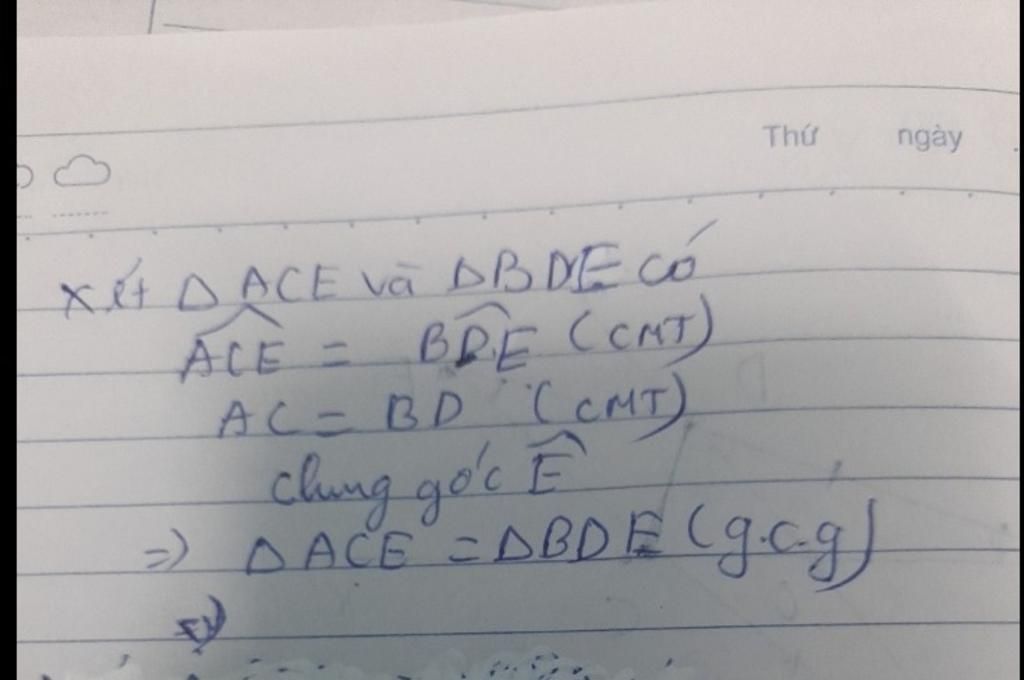 Thứ ngày
Xét Δ ACE và ΔBDE có
ACE = BDE (CMT)
AC = BD (CMT)
chung góc E
=> Δ ACE = ΔBDE (g.c.g)